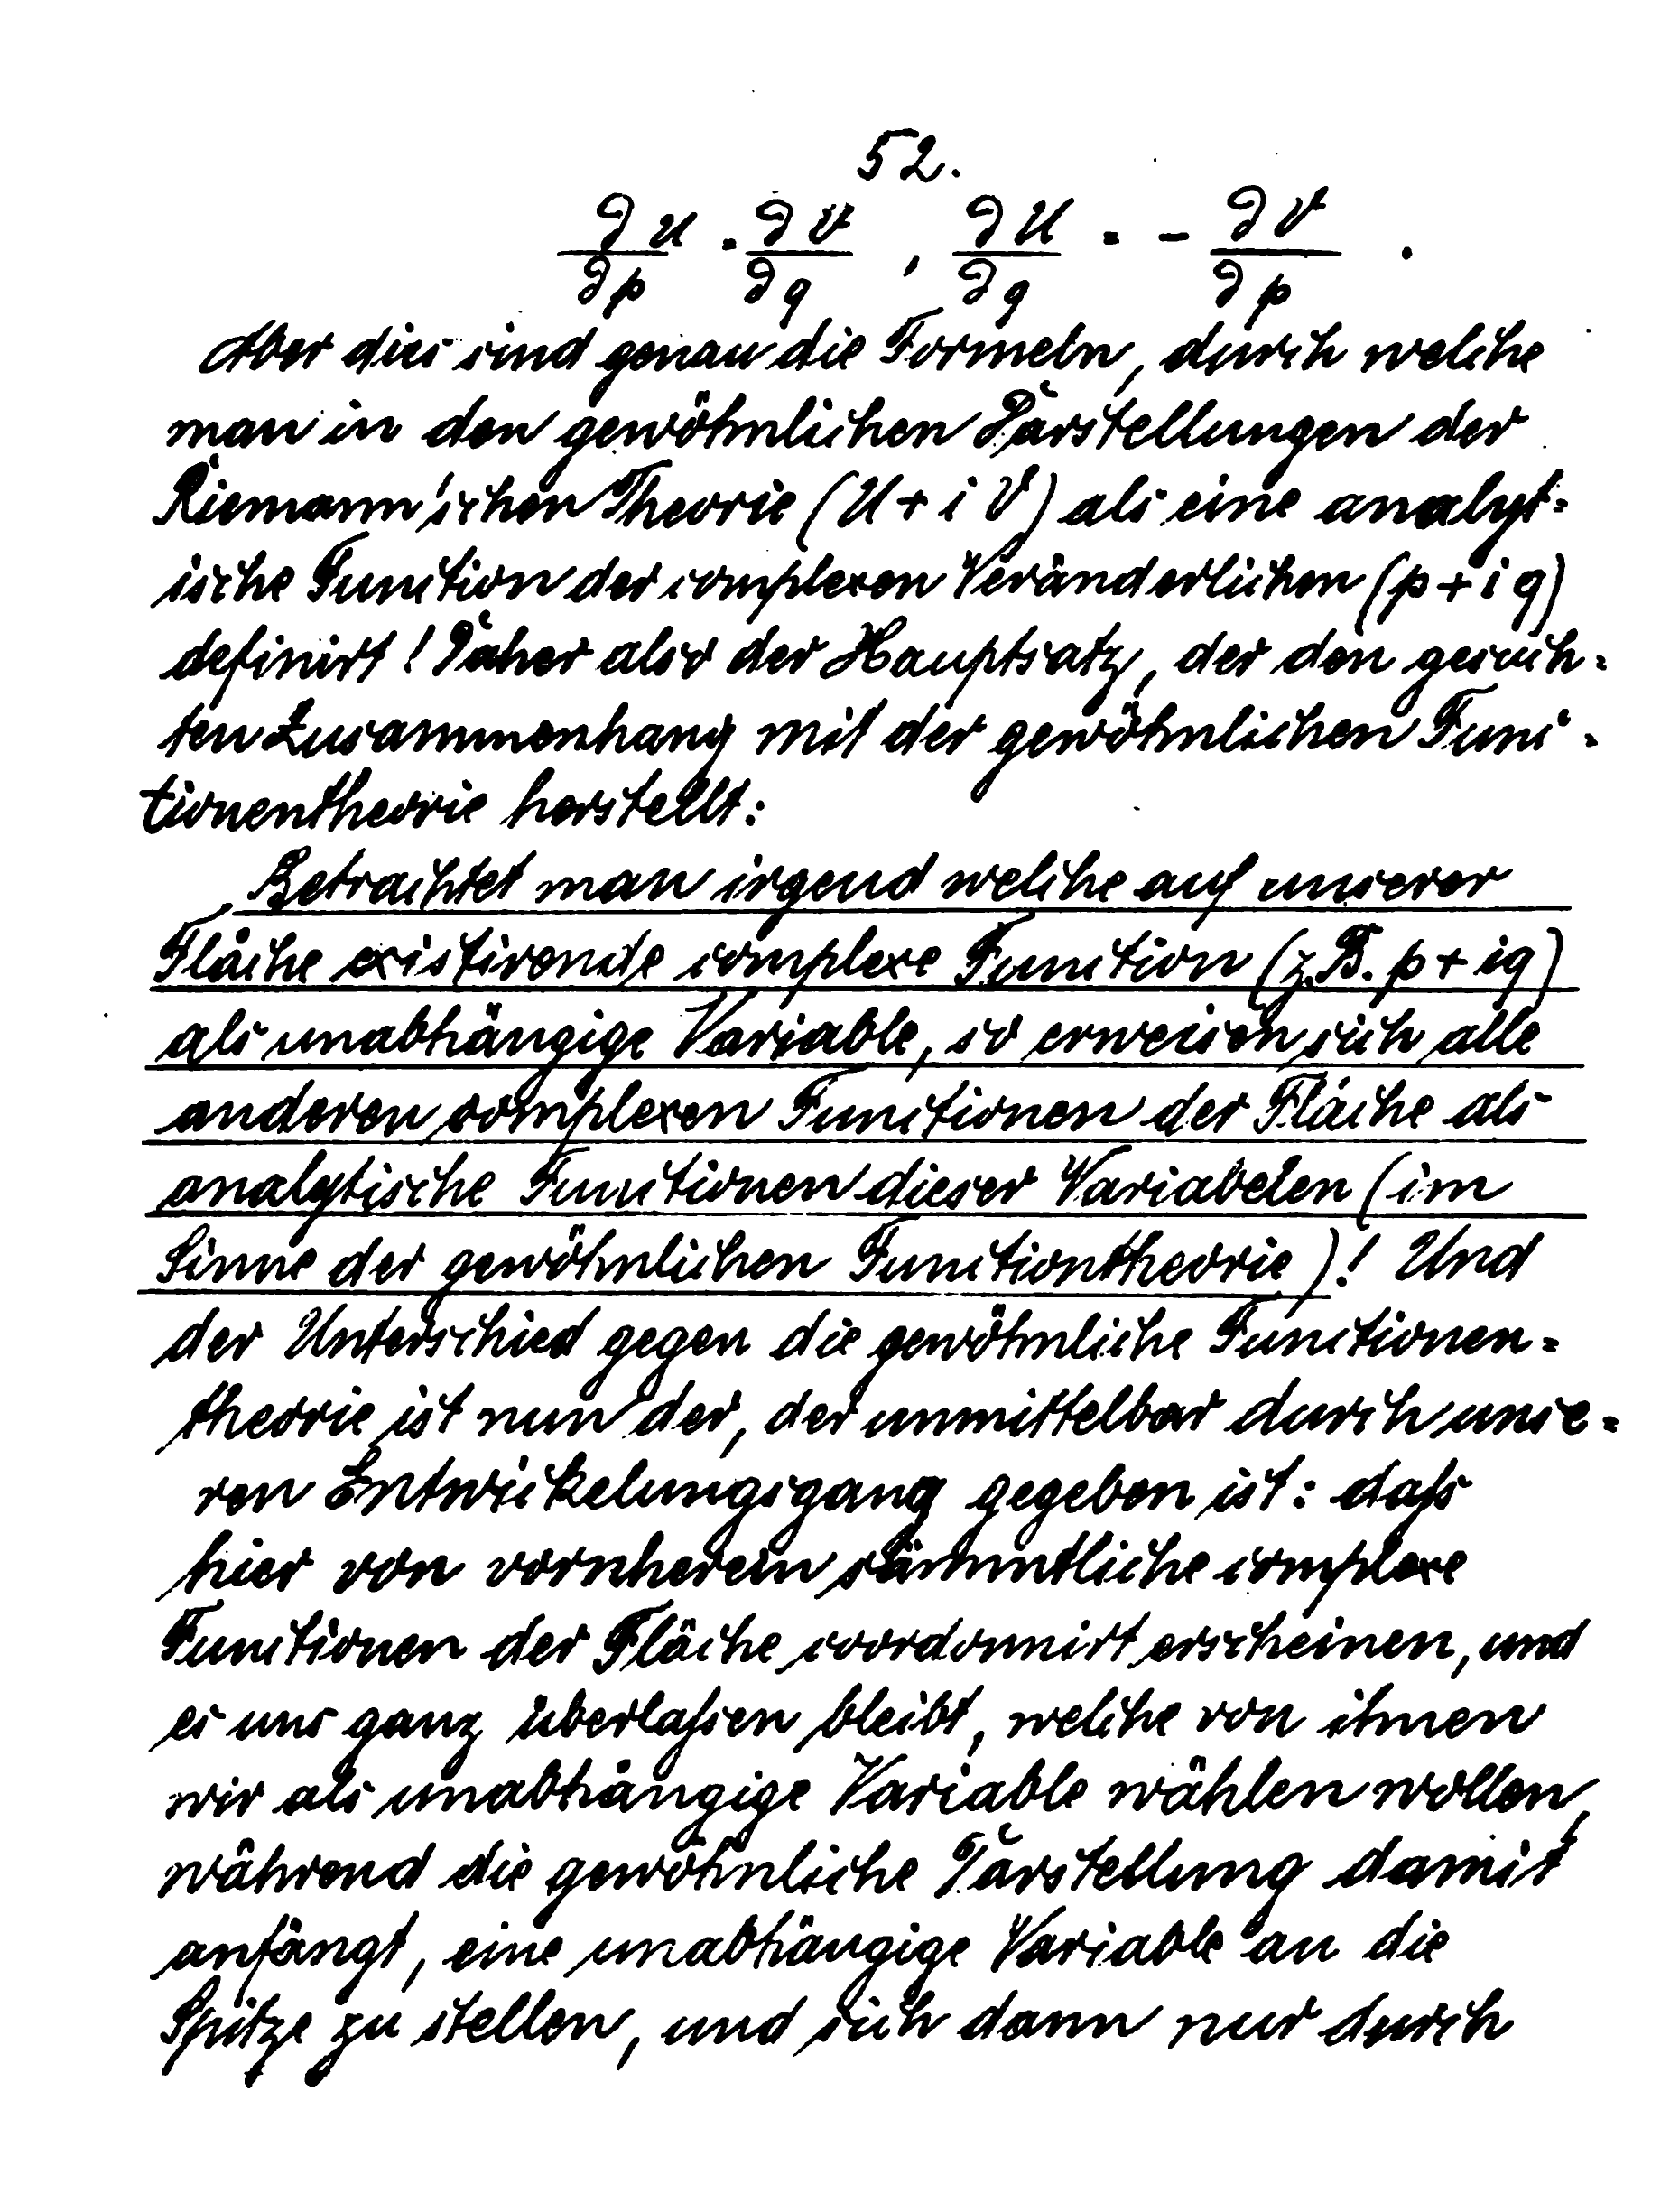 52.
∂U/∂p = ∂V/∂q , ∂U/∂q = - ∂V/∂p .
Aber dies sind genau die Formeln, durch welche
man in den gewöhnlichen Darstellungen der
Riemann'schen Theorie (U + i V) als eine analyt=
ische Function der complexen Veränderlichen (p + i q)
definirt! Daher also der Hauptsatz, der den gesuch=
ten Zusammenhang mit der gewöhnlichen Func=
tionentheorie herstellt:
Betrachtet man irgend welche auf unserer
Fläche existirende complexe Function (z.B. p + iq)
als unabhängige Variable, so erweisen sich alle
anderen complexen Functionen der Fläche als
analytische Functionen dieser Variabelen (im
Sinne der gewöhnlichen Functiontheorie)! Und
der Unterschied gegen die gewöhnliche Functionen=
theorie ist nun der, der unmittelbar durch unse=
ren Entwickelungsgang gegeben ist: daſs
hier von vornherein sämmtliche complexe
Functionen der Fläche coordonnirt erscheinen, und
es uns ganz überlaſsen bleibt, welche von ihnen
wir als unabhängige Variable wählen wollen,
während die gewöhnliche Darstellung damit
anfängt, eine unabhängige Variable an die
Spitze zu stellen, und sich dann nur durch